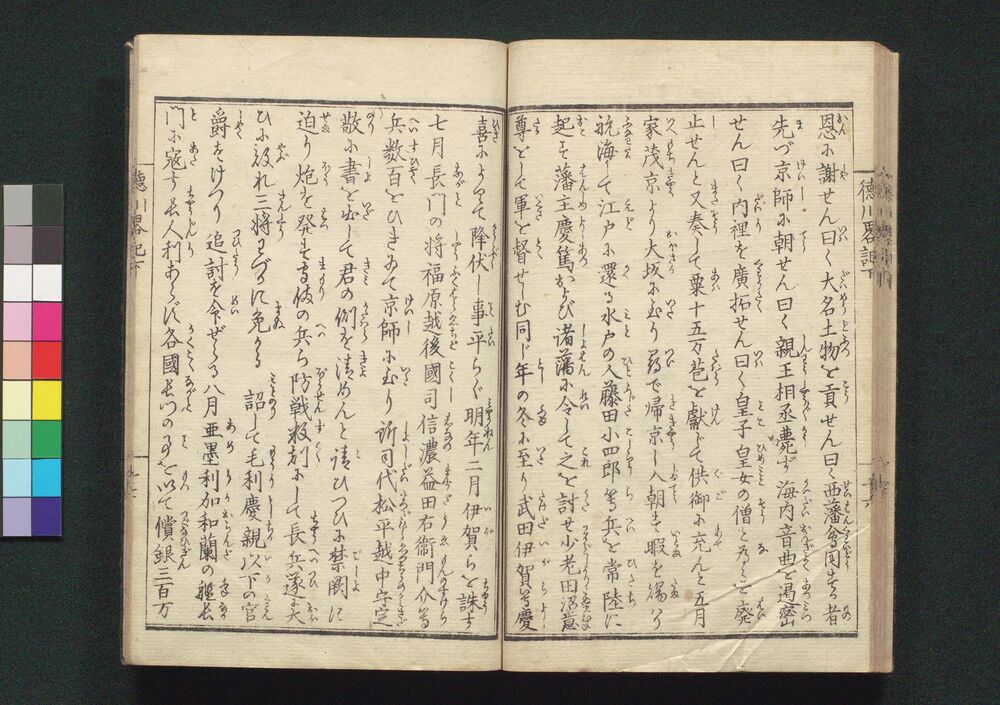 恩に謝せん曰く大名土物を貢せん曰く西藩會同する者
先づ京師に朝せん曰く親王相丞薨ず海内音曲を遏密
せん曰く内裡を廣拓せん曰く皇子皇女の僧となるを廃
止せんと又奏して粟十五万苞を獻じて供御に充んと五月
家茂京より大坂に至り尋で帰京し入朝す暇を賜はり
航海して江戸に還る水戸の人藤田小四郎等兵を常陸に
起す藩主慶篤および諸藩に令して之を討せ小老田沼意
尊をして軍を督せしむ同じ年の冬に至り武田伊賀等慶
喜によりて降伏し事平らぐ明年二月伊賀らを誅す
七月長門の将福原越後國司信濃益田右衞門介等
兵数百をひきゐて京師に至り所司代松平越中守定
敬に書を出して君の側を清めんと請ひつひに禁闕に
迫り炮を發す守伎の兵ら防戦数刻にして長兵遂に大
ひに敗れ三将わづかに免かる 詔して毛利慶親以下の官
爵をけづり 追討を令ぜらる八月亜墨利加和蘭の艦長
門に寇す長人利あらず各國長門の子を以て償銀三百万
徳川畧記下
徳川畧記下